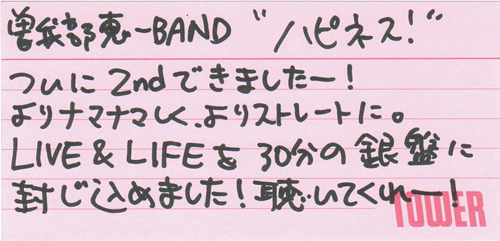 曽我部恵一BAND "ハピネス!"
ついに2ndできましたー!
よりナマナマしく、よりストレートに。
LIVE & LIFEを30分の銀盤に
封じ込めました!聴いてくれー!
TOWER